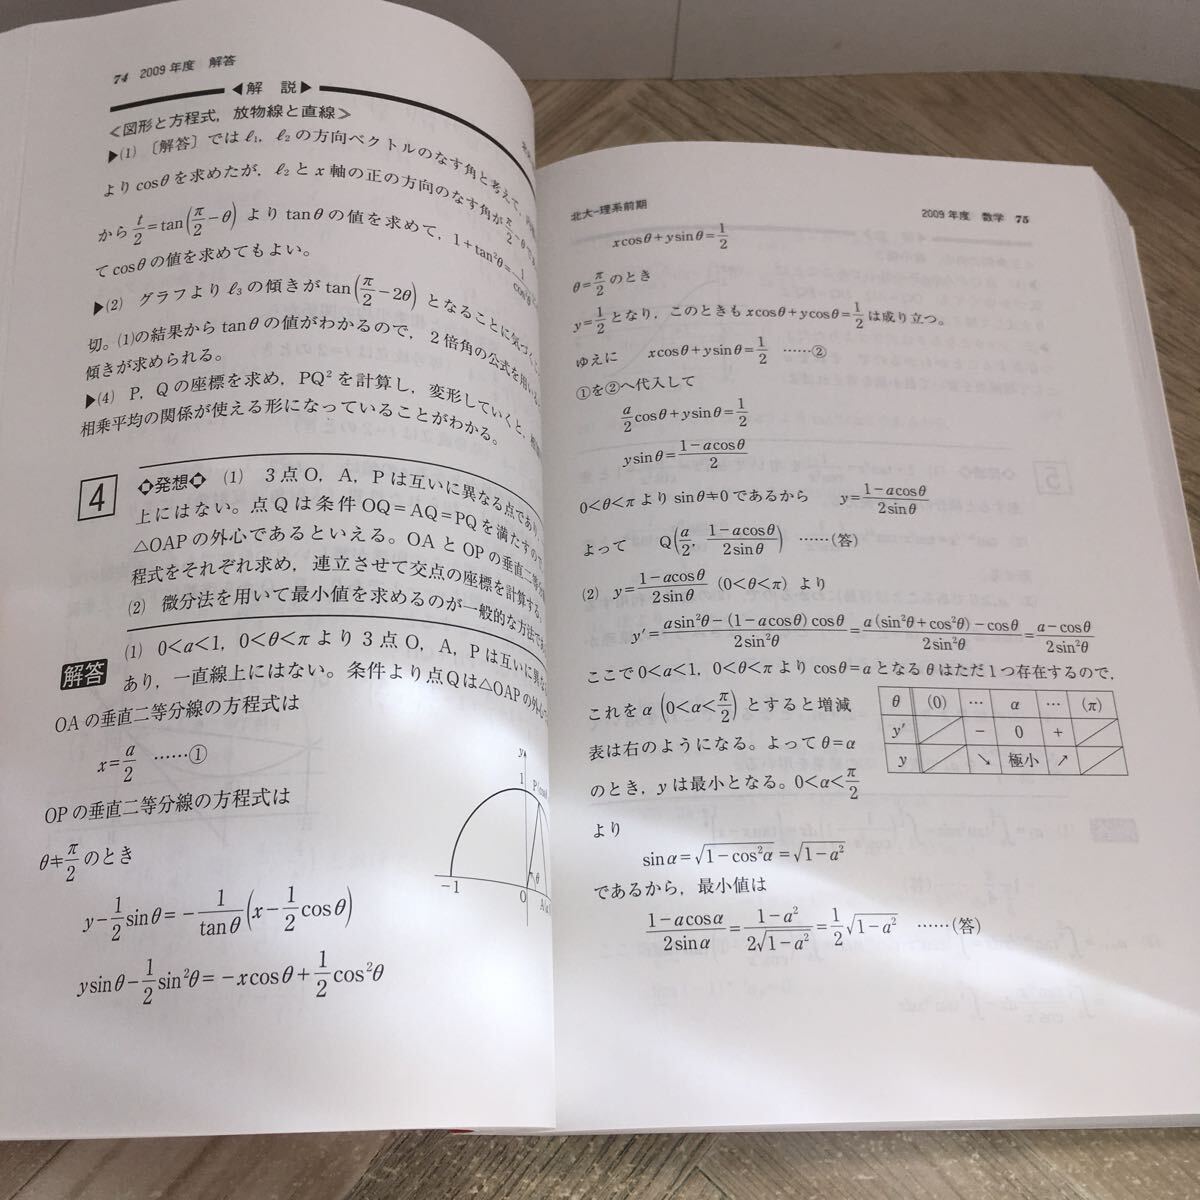 74 2009年度 解答
◀解 説▶
≪図形と方程式，放物線と直線≫
▶(1) 〔解答〕ではℓ₁，ℓ₂の方向ベクトルのなす角と考えて，
よりcosθを求めたが，ℓ₂とx軸の正の方向のなす角がπ/2−θ
からt/2=tan(π/2−θ)よりtanθの値を求めて，1+tan²θ=1/cos²θ
てcosθの値を求めてもよい。
▶(2) グラフよりℓ₃の傾きがtan(π/2−2θ)となることに気づく
切。(1)の結果からtanθの値がわかるので，2倍角の公式を用い
傾きが求められる。
▶(4) P，Qの座標を求め，PQ²を計算し，変形していくと，
相乗平均の関係が使える形になっていることがわかる。
4 ◆発想◆ (1) 3点O，A，Pは互いに異なる点であり，
上にはない。点Qは条件OQ=AQ=PQを満たすので，
△OAPの外心であるといえる。OAとOPの垂直二等分
程式をそれぞれ求め，連立させて交点の座標を計算する。
(2) 微分法を用いて最小値を求めるのが一般的な方法であ
解答 (1) 0<a<1，0<θ<πより3点O，A，Pは互いに異な
あり，一直線上にはない。条件より点Qは△OAPの外心
OAの垂直二等分線の方程式は
x=a/2 ……①
OPの垂直二等分線の方程式は
θ≠π/2のとき
y−1/2 sinθ=−1/tanθ(x−1/2 cosθ)
ysinθ−1/2 sin²θ=−xcosθ+1/2 cos²θ
y
1
P
−1
O
θ
A
北大−理系前期
2009年度 数学 75
xcosθ+ysinθ=1/2
θ=π/2のとき
y=1/2となり，このときもxcosθ+ycosθ=1/2は成り立つ。
ゆえに xcosθ+ysinθ=1/2 ……②
①を②へ代入して
a/2 cosθ+ysinθ=1/2
ysinθ=(1−acosθ)/2
0<θ<πよりsinθ≠0であるから y=(1−acosθ)/(2sinθ)
よって Q(a/2, (1−acosθ)/(2sinθ)) ……(答)
(2) y=(1−acosθ)/(2sinθ) (0<θ<π)より
y′=(asin²θ−(1−acosθ)cosθ)/(2sin²θ)=(a(sin²θ+cos²θ)−cosθ)/(2sin²θ)=(a−cosθ)/(2sin²θ)
ここで0<a<1，0<θ<πよりcosθ=aとなるθはただ1つ存在するので，
これをα(0<α<π/2)とすると増減
表は右のようになる。よってθ=α
のとき，yは最小となる。0<α<π/2
より
θ (0) … α … (π)
y′ − 0 +
y ↘ 極小 ↗
sinα=√(1−cos²α)=√(1−a²)
であるから，最小値は
(1−acosα)/(2sinα)=(1−a²)/(2√(1−a²))=1/2√(1−a²) ……(答)